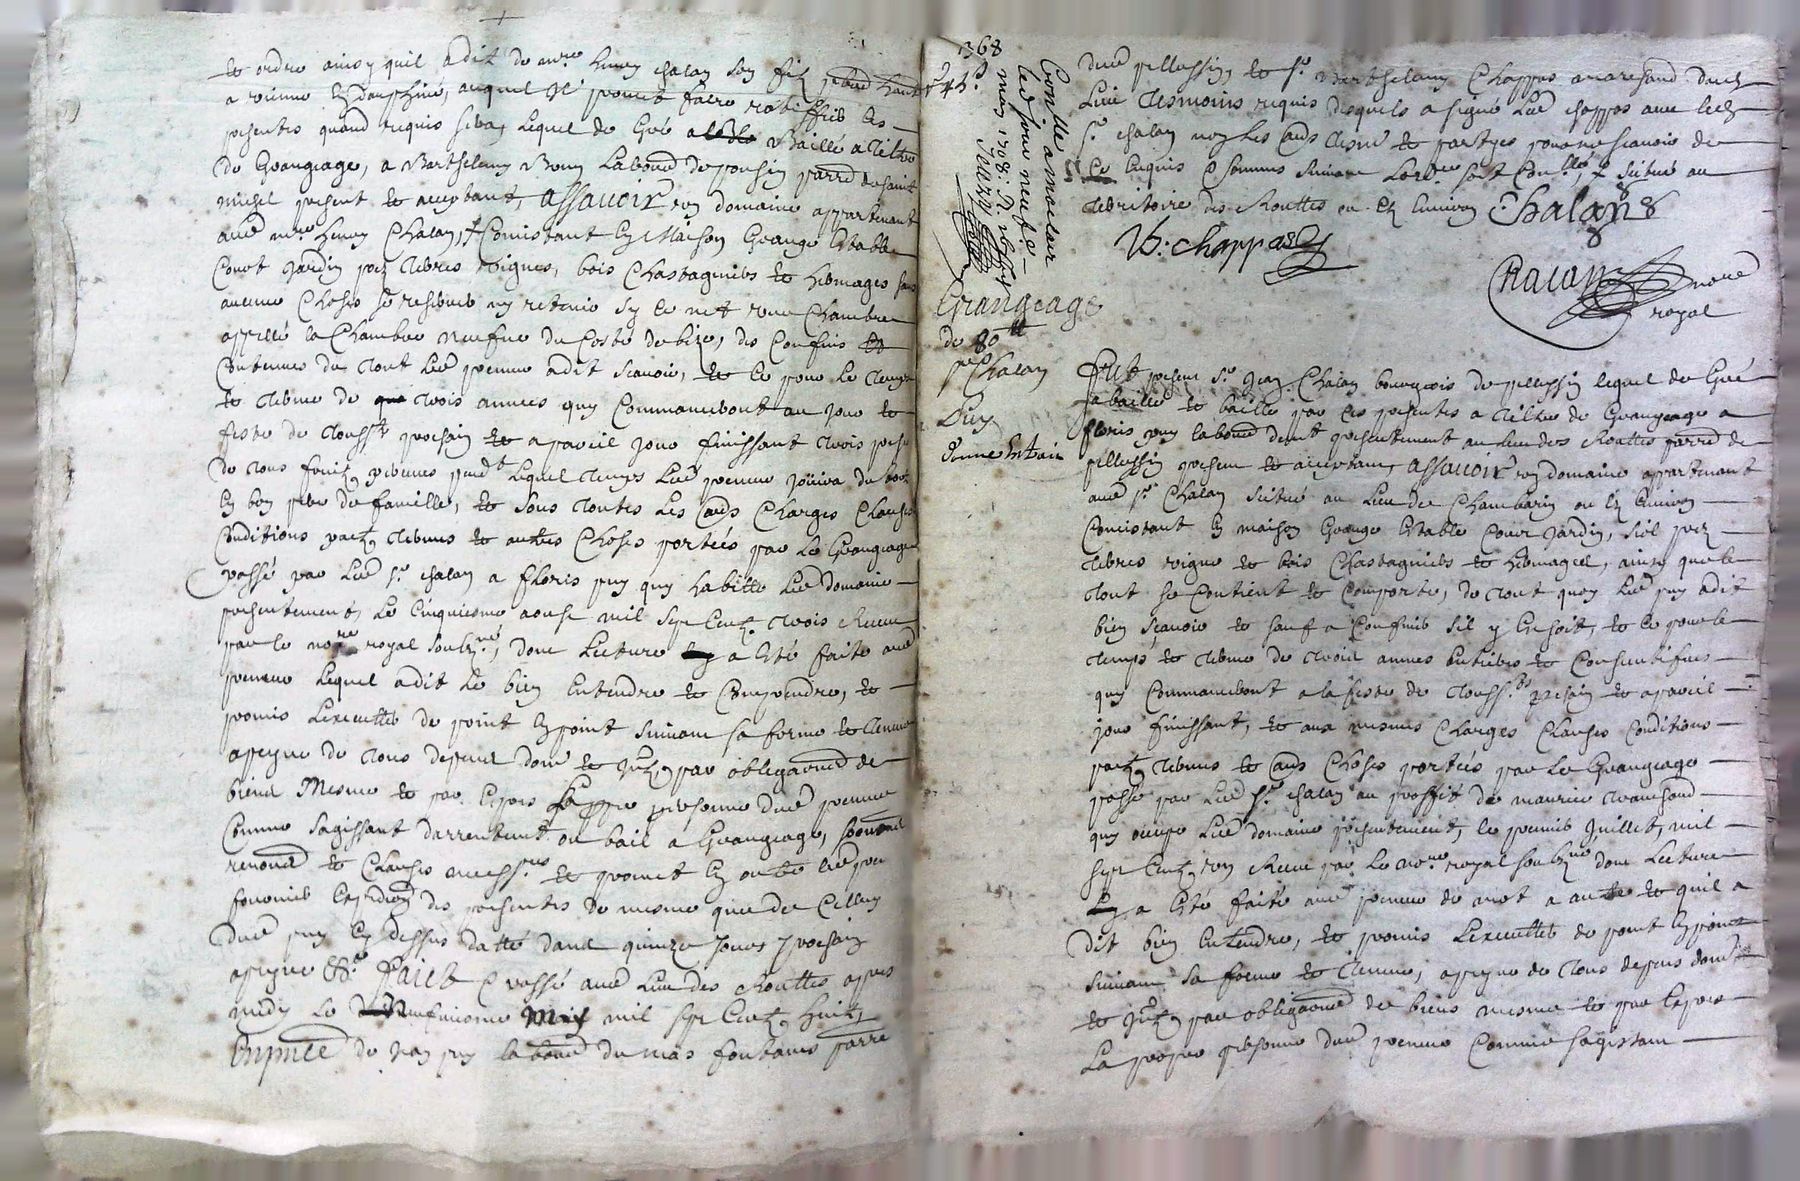 et ordre ainsy quil a dit de mre henry chalan son filz
a vienne en dauphiné, auquel Il promet faire ratiffier les
presentes quand requis sera, lequel de gré a baillé a tiltre
de Grangeage, a Barthelemy Bony laboureur de pousin parroisse de saint
michel present et acceptant, assavoir un domaine appartenant
aud mre henry Chalan, Consistant en Maison Grange Estable
Court Jardin prez terres vignes, bois Chastagniers et hermages sans
aucune Choses se reserver ny retenir sy ce nest une Chambre
appellé la Chambre neufve du Costé de bize, des Confins et
Contenue du tout led preneur a dit scavoir, et ce pour le temps
et terme de trois annees quy Commanceront au jour et
feste de Toussts prochain et a pareil jour finissant trois
de tous fruitz, pendt lequel temps led preneur jouira du tout
en bon pere de famille, et sous toutes les Charges Clauses
Conditions pactz, termes et autres Choses portées par le Grangeage
passé par led sr chalan a floris puy quy habitte led domaine
presentement, le Cinquiesme aoust mil sept Centz trois Receu
par le nore royal soubzné, dont lecture a esté faite aud
preneur lequel a dit le bien entendre et Comprendre, et
promis lexecutter de point en point suivant sa forme et teneur
a peyne de tous depens dom et par obligation de
biens Mesme et par Expres sa propre personne dud preneur
Comme sagissant darrentemt ou bail a Grangeage,
renond et Clauses necessres et promet en outre led preneur
fournir Expedition des presentes de mesme que de Celluy
dud puy cy dessus datté dans quinze jours prochain
a peyne &a. Faict & passé aud lieu des Roultes apres
midy le neufviesme may mil sept Centz huit,
En pnce de Jean puy laboureur du mas fontanes parre
368
Con lle a malclair
led jour neufe
may 1708.
Grangeage
de 80 tt
pr Chalan
Puy
donné Extrait
dud pellussin, et sr Barthelemy Chappas marchand dud
Lieu tesmoins requis desquels a signé led chappas avec led
sr chalan non les autres tesmt et partyes pour ne scavoir de
Ce enquis & sommés suivant lordce scitué au
territoire des Roultes ou en Environ Chalan
B: chappas
Racan nore
royal
Fut present sr Jean Chalan bourgeois de pellussin lequel de Gré
a baillé et baille par ces presentes a tiltre de Grangeage a
floris puy laboureur dem.t presentement au lieu des Roultes parre de
pellussin present et acceptant, assavoir un domaine appartenant
aud sr Chalan scitué au lieu de Chambarin ou en Environ
Consistant en maison Grange Estable Cour Jardin, sol prez
terres vigne et bois Chastagniers et hermages, ainsy que le
tout se Contient et Comporte, de tout quoy led puy a dit
bien scavoir et sauf a Confiner sil y Eschoit, et ce pour le
temps et terme de trois annees Entieres et Consecutifves
quy Commanceront a la feste de Toussts prochain et a pareil
jour finissant, et aux mesmes Charges Clauses Conditions
pactz, termes et autres Choses portées par le Grangeage
passé par led sr chalan au proffit de maurice
quy occupe led domaine presentement, le premier Juillet, mil
sept Centz, un Receu par le nore royal soubzné dont lecture
a esté faite aud preneur de mot a autre et quil a
dit bien Entendre, et promis lexecutter de point en point
suivant sa forme et teneur, a peyne de tous depens dom
et par obligation de biens mesme et par Expres
La propre personne dud preneur Comme sagissant